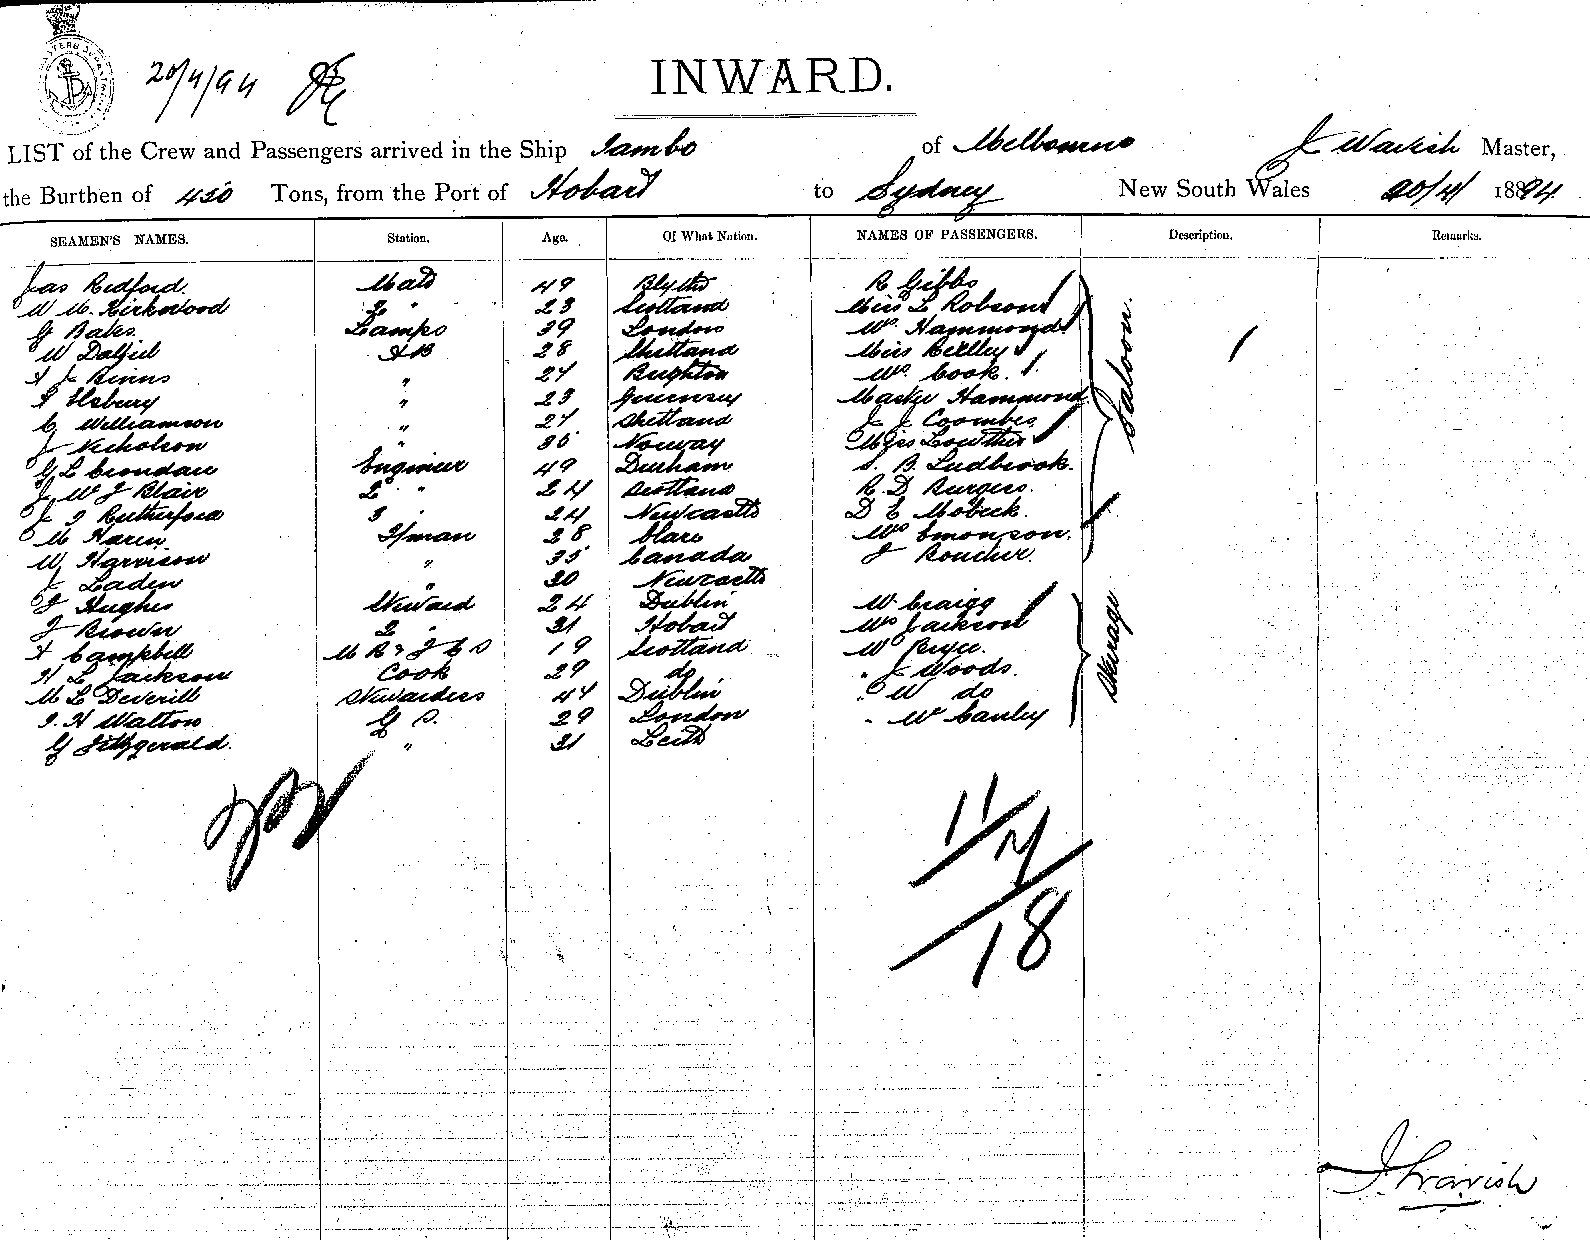 20/4/94
INWARD.
LIST of the Crew and Passengers arrived in the Ship Iambo of Melbourne J Master,
the Burthen of 450 Tons, from the Port of Hobart to Sydney New South Wales 20/4/ 1894
SEAMEN'S NAMES. Station. Age. Of What Nation. NAMES OF PASSENGERS. Description. Remarks.
Jas Redford. Mate 49 Blyth R Gibbs
W M. Kirkwood 2 " 23 Scotland Miss L Robson
G Bates Lamps 39 London Mrs. Hammond
W Dalziel AB 28 Shetland Miss
A J Binns " 24 Brighton Mrs. Cook.
" 23 Guernsey Master Hammond
C Williamson " 24 Shetland J J Coombes
J Nicholson " Norway Miss Lowther
G L Engineer 49 Durham S. B. Ludbrook.
J W J Blair 2 " 24 Scotland R. D Burgess.
J Rutherford 3 " 24 Newcastle D E Mobeck.
M F/man 28 Clare Mrs
W Harrison " 35 Canada J Boucher.
J Laden " 30 Newcastle
Saloon
J Hughes Steward 24 Dublin W Craigg
J Brown 2 " 31 Hobart Mrs Jackson
A Campbell 19 Scotland W Bryce.
H L Jackson Cook 29 do " J Woods.
M L Deverill Stewardess 44 Dublin " W do
H Walton G S. 29 London " W Canley
G Fitzgerald. " 31 Leith
Steerage
11/7
18